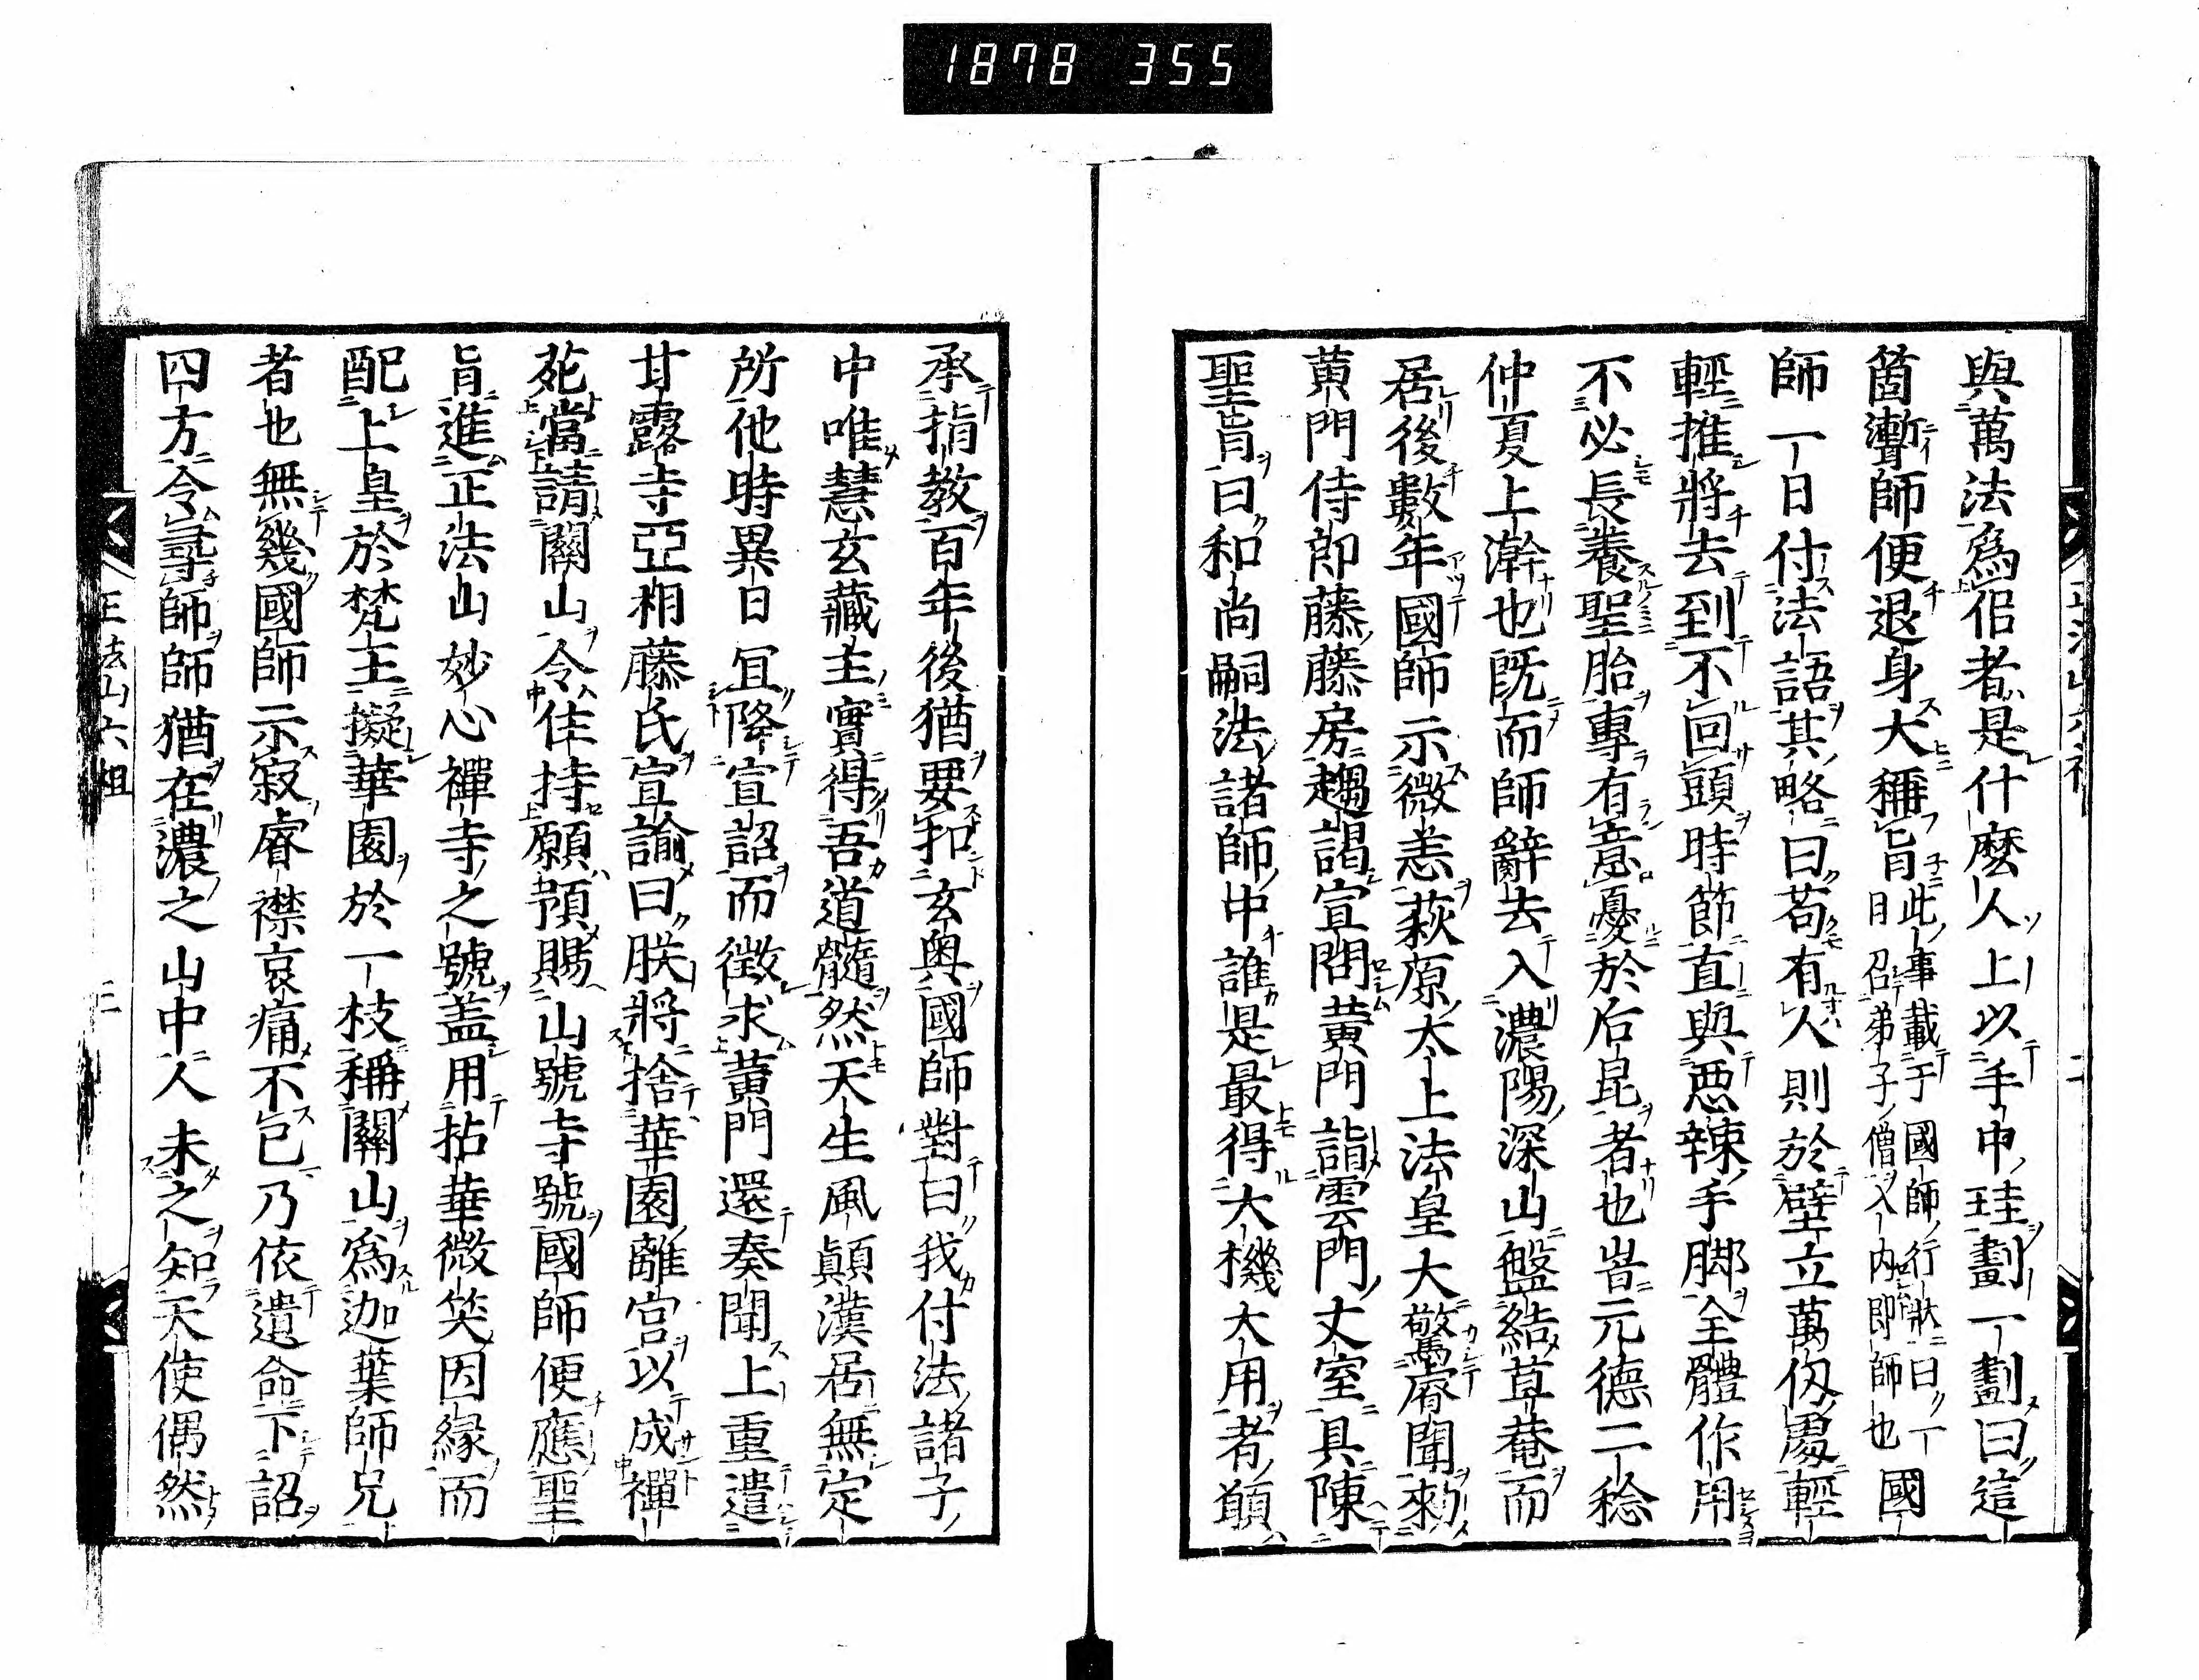 1878 355
與萬法爲侶者是什麼人上以手中珪劃一劃曰這
箇漸師便退身大稱旨此事載于國師行狀曰一日召弟子僧入内即師也國
師一日付法語其略曰苟有人則於壁立萬仭處輕
輕推將去到不回頭時節直與惡辣手脚全體作用
不必長養聖胎專有意憂於后昆者也旹元德二稔
仲夏上澣也既而師辭去入濃陽深山盤結草菴而
居後數年國師示微恙萩原太上法皇大驚睿聞勑
黄門侍郎藤藤房趨謁宣問黄門詣雲門丈室具陳
聖旨曰和尚嗣法諸師中誰是最得大機大用者願
承指教百年後猶要扣玄奥國師對曰我付法諸子
中唯慧玄藏主實得吾道髓然天生風顛漢居無定
所他時異日宜降宣詔而徴求黄門還奏聞上重遣
甘露寺亞相藤氏宣諭曰朕將捨華園離宮以成禪
苑當請關山令住持願預賜山號寺號國師便應聖
旨進正法山妙心禪寺之號蓋用拈華微笑因緣而
配上皇於梵王擬華園於一枝稱關山爲迦葉師兄
者也無幾國師示寂睿襟哀痛不已乃依遺命下詔
四方令尋師師猶在濃之山中人未之知天使偶然
正法山六祖
三